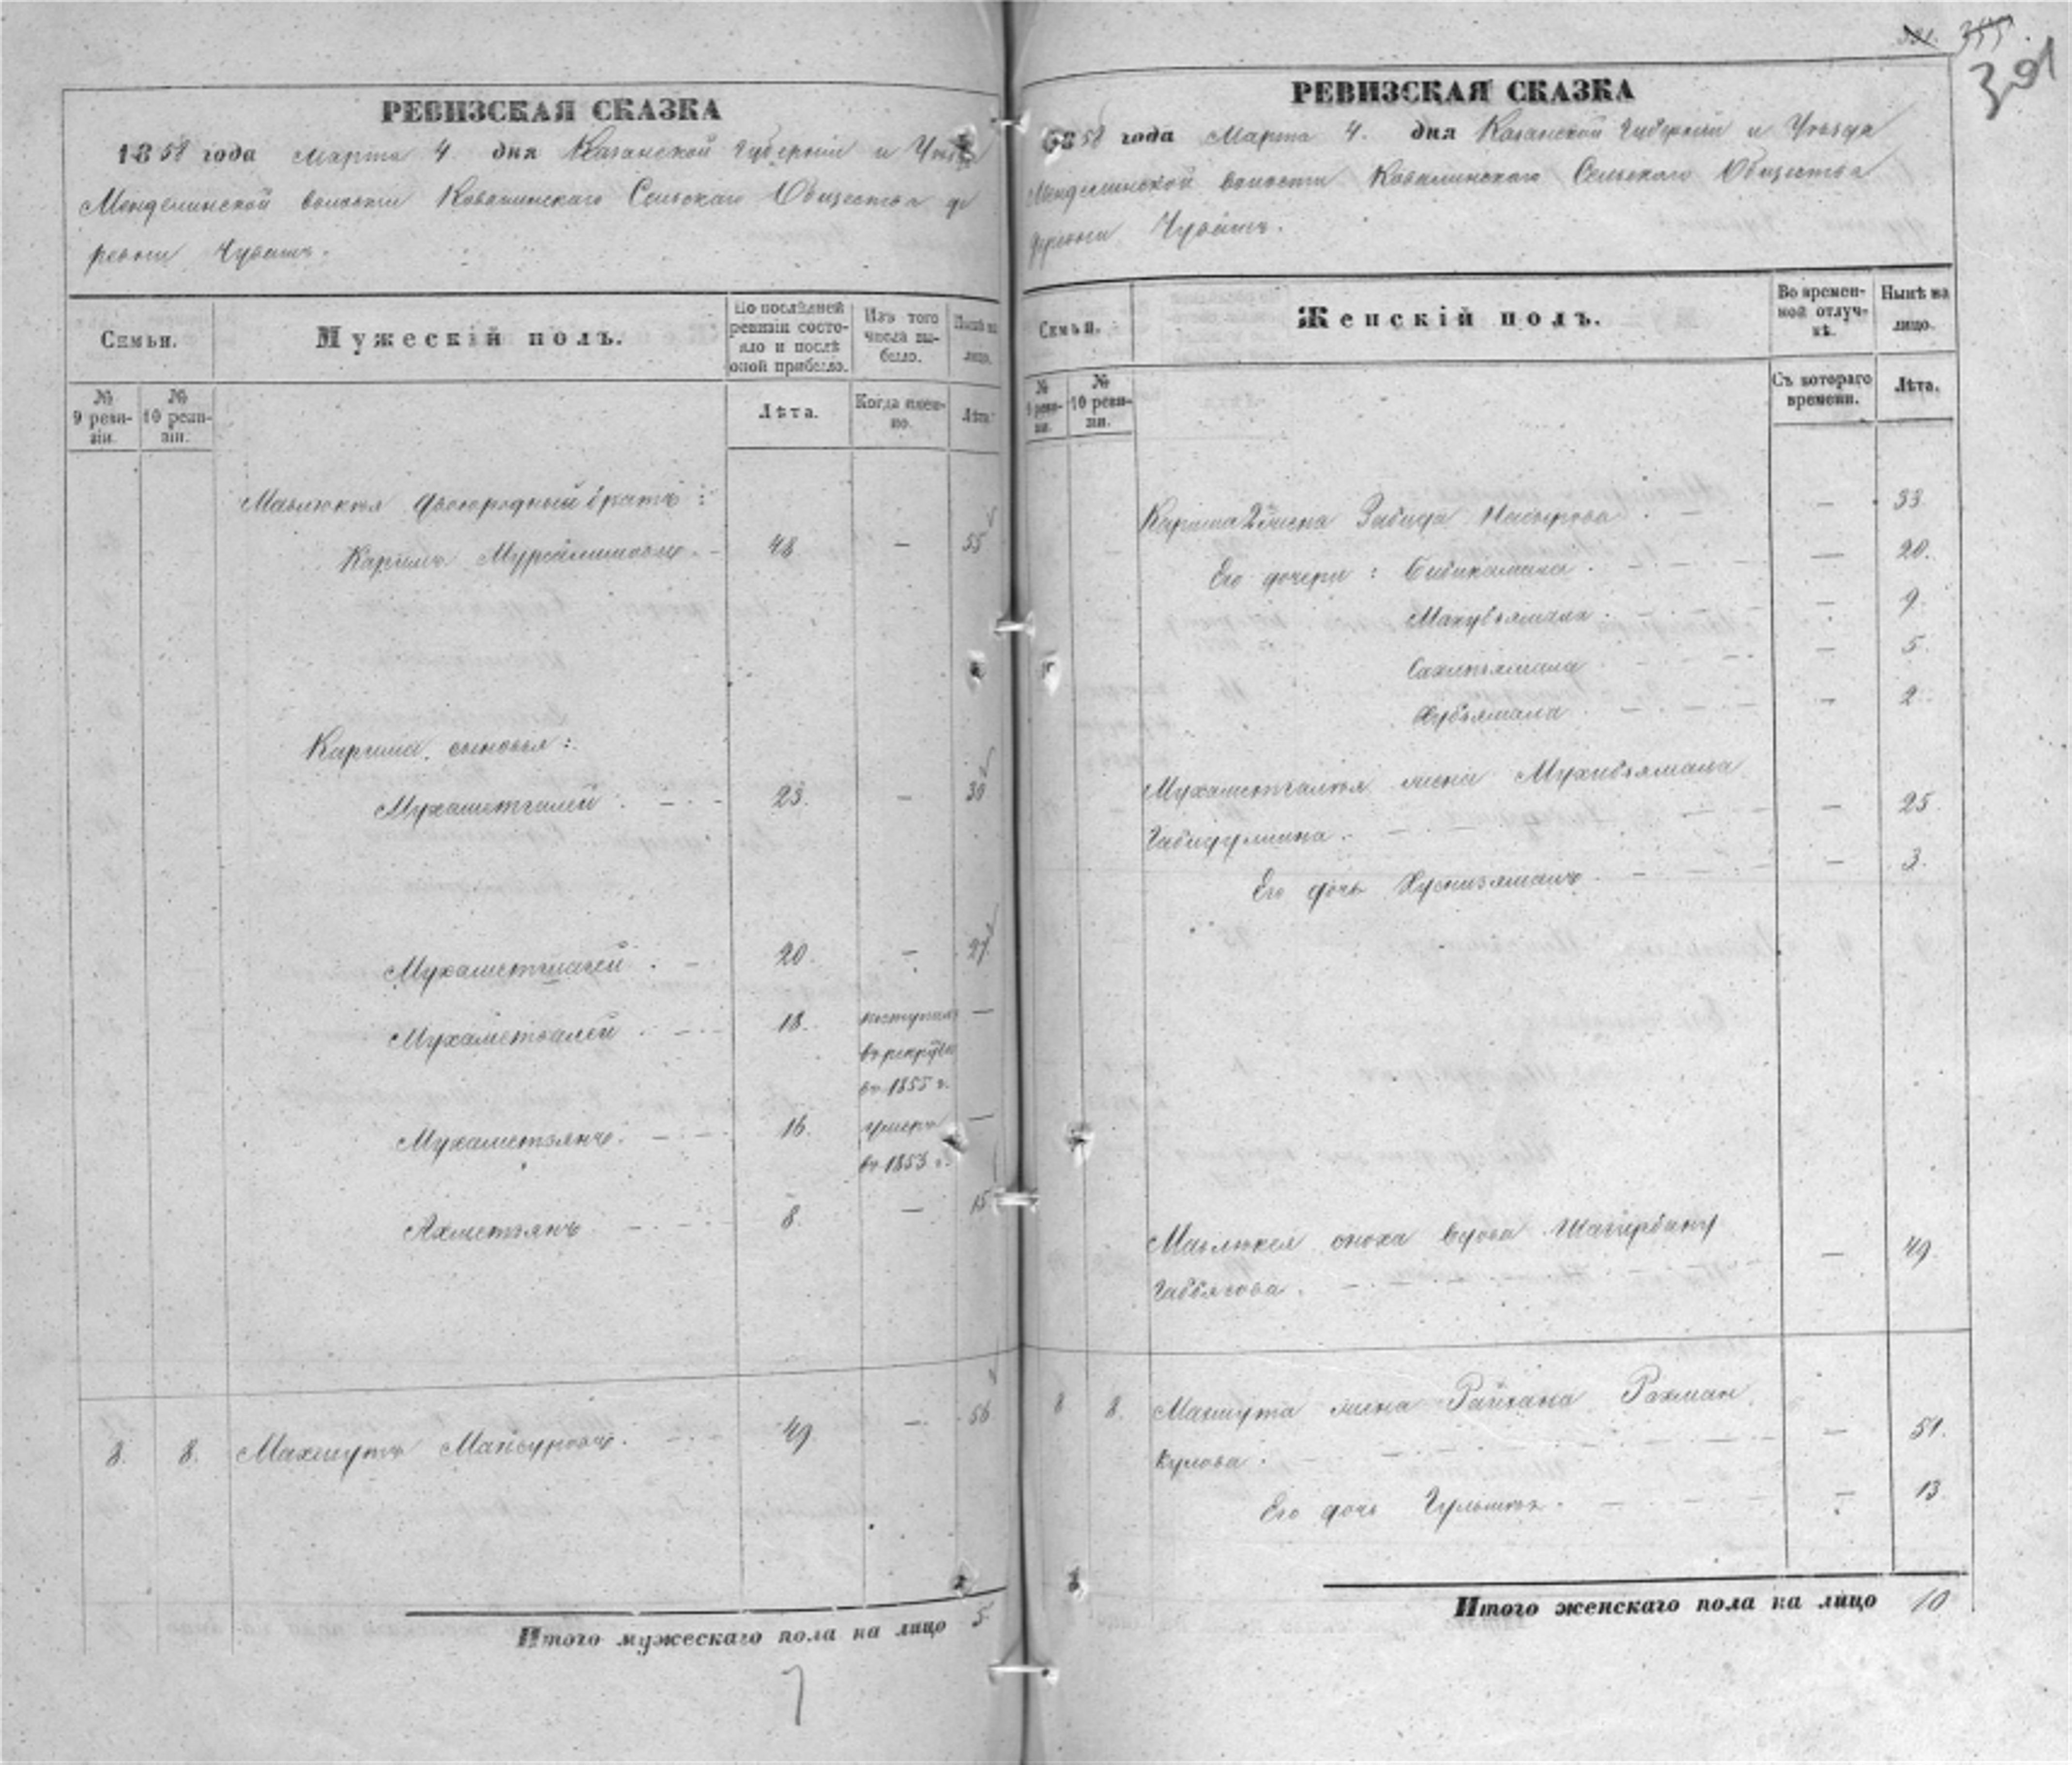 331. 355.
391
РЕВИЗСКАЯ СКАЗКА
1858 года Марта 4. дня Казанской Губерніи и Уѣзда
Менделинской волости Ковалинскаго Сельскаго Общества де
ревни Чувашъ.
Семьи.
Мужескій полъ.
По послѣдней ревизіи состояло и послѣ оной прибыло.
Изъ того числа выбыло.
Нынѣ на лицо.
№ 9 ревизіи.
№ 10 ревизіи.
Лѣта.
Когда именно.
Лѣта.
Мавлюкѣя двоюродный братъ:
Каримъ Мурсалимовъ. 48 — 55
Карима сыновья:
Мухаметгалей 23. — 30
Мухаметшагей 20. — 27.
Мухаметвалей 18. поступилъ —
въ рекруты
въ 1855 г.
Мухаметзянъ. 16. умеръ —
въ 1853 г.
Ахметзянъ 8. — 15
8. 8. Махмутъ Мансуровъ. 49 — 56
Итого мужескаго пола на лицо 5.
7
РЕВИЗСКАЯ СКАЗКА
1858 года Марта 4. дня Казанской Губерніи и Уѣзда
Менделинской волости Ковалинскаго Сельскаго Общества
деревни Чувашъ.
Семьи.
Женскій полъ.
Во временной отлучкѣ.
Нынѣ на лицо.
№ 9 ревизіи.
№ 10 ревизіи.
Съ котораго времени.
Лѣта.
Карима 2я жена Забида — 33.
Его дочери: Бибикамала. — 20.
Махубзямала. — 9.
Сахипзямала — 5.
Хубзямала — 2.
Мухаметгалѣя жена Мухибзямала
Габидуллина. — 25.
Его дочь Хуснизямалъ — 3.
Мавлюкея сноха вдова Шагирбану
Габбясова. — 49.
8 8. Махмута жена Райхана Рахман
кулова. — 51.
Его дочь — 13
Итого женскаго пола на лицо 10